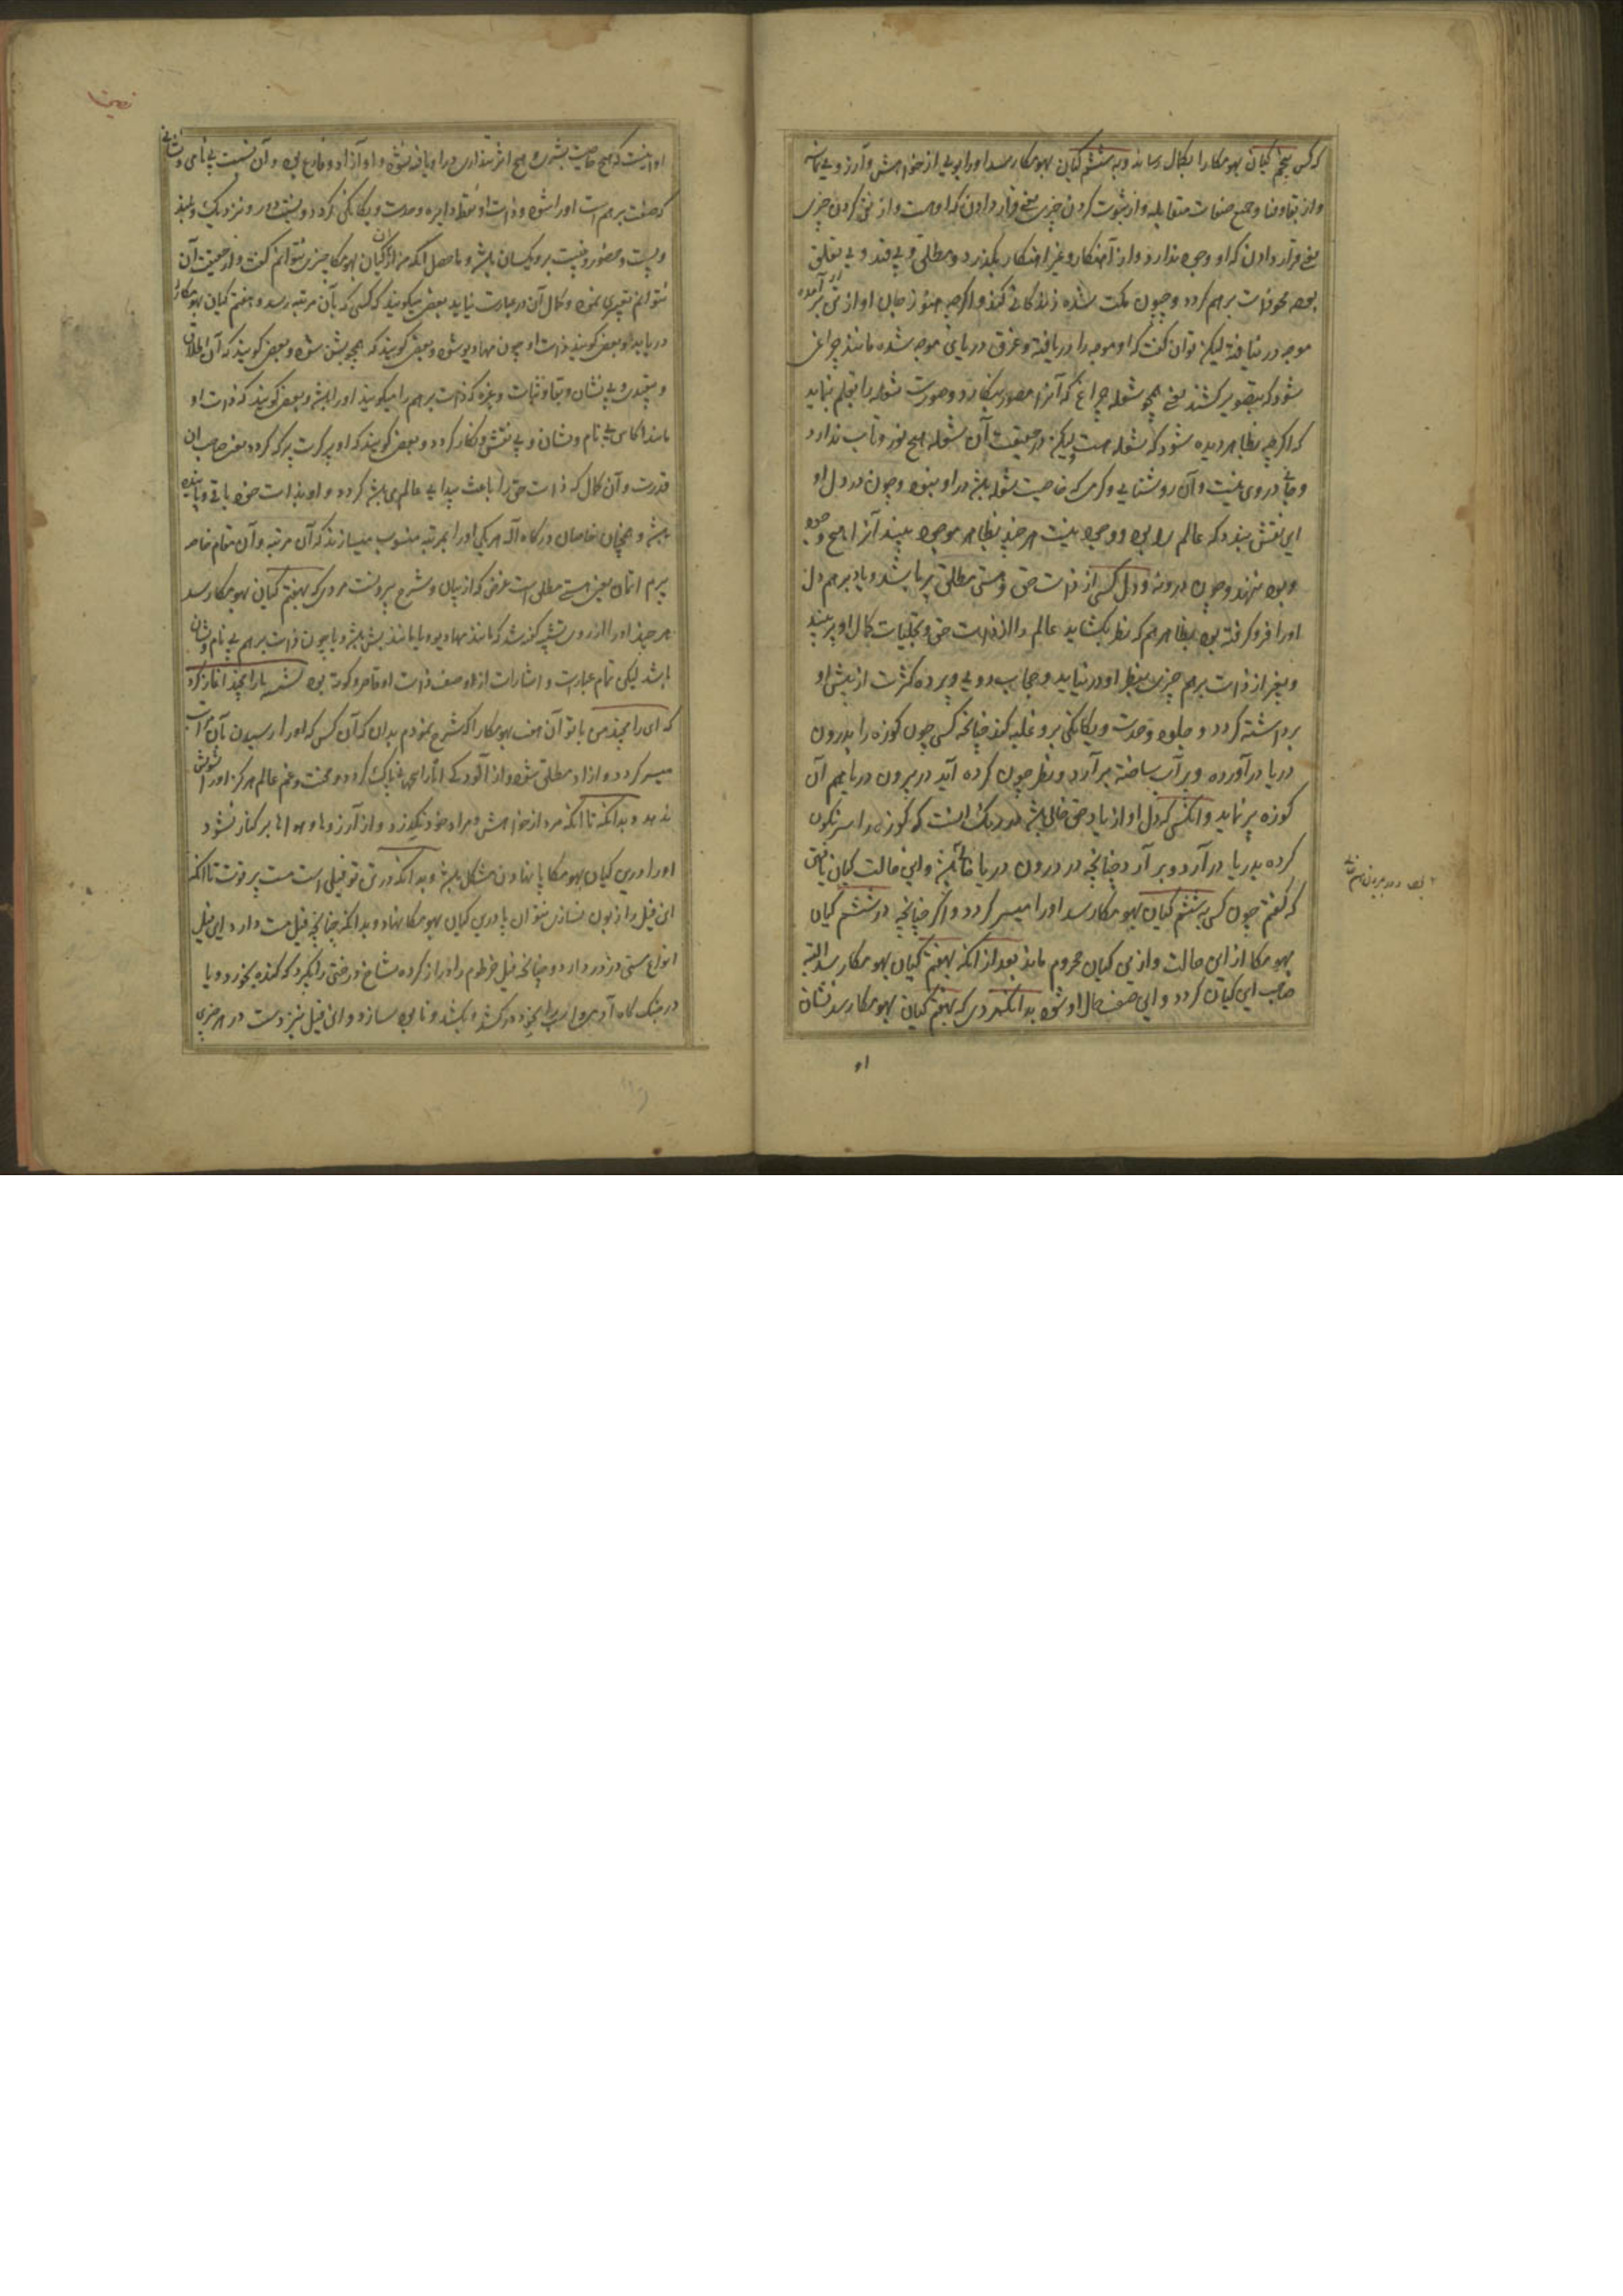 که کسی پنجم کیان بهومکا را بکمال رساند و به ششم کیان بهومکا رسد او را بویی از خواهش و آرزویی نماند
و از بقا و فنا و جمیع صفات متقابله و از ثبوت کردن چیزی یعنی قرار دادن که او هست و از نفی کردن چیزی
یعنی قرار دادن که او وجود ندارد و از آهنکار و غیر اهنکار بگذرد و مطلق و بی قید و بی تعلق
بوده محو ذات برهم گردد و چون مکت شده زندگانی کند و اگرچه هنوز جان او از تن بر آمده
موجه در نیافته لیکن توان گفت که او موجه را دریافته و غرق دریای موجه شده مانند چراغی
شود که بتصویر کشند یعنی همچو شعله چراغ که آنرا مصور بنگارد و صورت شعله را بقلم بنماید
که اگرچه بظاهر دیده شود که شعله هست لیکن در حقیقت آن شعله هیچ نور و تاب ندارد
و جانی در وی نیست و آن روشنایی و گرمی که خاصیت شعله باشد در او نبود و چون در دل او
این نقش بندد که عالم را بود و وجود نیست هرچند بظاهر موجود بیند آنرا هیچ وجود
و بود ننهند و چون درونه و دل کسی از ذات حق و هستی مطلق پر باشد و یاد برهم دل
او را فرو گرفته بود بظاهر هم که نظر بگشاید عالم را از ذات حق و تجلیات کمال او پر بیند
و بغیر از ذات برهم چیزی بنظر او در نیاید و حجاب دویی و پرده کثرت از پیش او
برداشته گردد و جلوه وحدت و یگانگی برو غلبه کند چنانچه کسی چون کوزه را بدرون
دریا در آورده و پر آب ساخته بر آرد و نظر چون کرده آید در برون دریا هم آن
کوزه پر نماید و انکسی که دل او از یاد حق خالی باشد بدرنگ اینست که کوزه را سرنگون
کرده بدریا در آرد و بر آرد چنانچه در درون دریا خالی باشد و این حالت کیان یافتن
که گفتم چون کسی به ششم کیان بهومکا رسد او را میسر گردد و اگر چنانچه در ششم کیان
بهومکا از این حالت و از این کیان محروم ماند بعد از انکه بهفتم کیان بهومکا رسد البته
صاحب این کیان گردد و این صفت حال او شود بدانکه مردی که بهفتم کیان بهومکا رسد نشان
او
او اینست که هیچ خاصیت بشری و هیچ اثر پنداری در او یافته نشود و او آزاد و فارغ بود و آن نسبت بی نامی و نشانی
که صفت برهم است او را شود و ذات او نقطه دایره وحدت و یگانگی گردد و نسبت دور و نزدیک و بلند
و پست و حضور و غیبت برو یکسان باشد و ماحصل آنکه من از آن کیان بهومکا چیزی نتوانم گفت و از حقیقت آن
نتوانم تعبیری نمود و کمال آن در عبارت نیاید بعضی میگویند که کسی که بآن مرتبه رسد و هفتم کیان بهومکا را
دریابد او بعضی گویند ذات او چون مهادیو شود و بعضی گویند که همچو بشن شود و بعضی گویند که آن اطلاق
و بیقیدی و بی نشان و بقا و ثبات و تنزه که ذات برهم را میگویند او را باشد و بعضی گویند که ذات او
مانند اکاس بی نام و نشان و بی نقش و نگار گردد و بعضی گویند که او پرکرت پرکه گردد یعنی صاحب آن
قدرت و آن کمال که ذات حق را باعث پیدایی عالم می باشد گردد و او بذات خود باقی و پاینده
باشد و همچنان خاصان درگاه اله هر یکی او را بمرتبه منسوب میسازند که آن مرتبه و آن مقام خاصه
پرم اتمان یعنی هستی مطلق است غرض که از بیان و شرح بیرونست مردی که بهفتم کیان بهومکا رسد
هرچند او را از روی تشبیه گفته شد که مانند مهادیو یا مانند بشن باشد و یا چون ذات برهم بی نام و نشان
باشد لیکن تمام عبارت و اشارات از وصف ذات او قاصر و کوته بود بشست با رامچند آغاز کرد
که ای رامچند من با تو آن هفت بهومکا را که شرح نمودم بدان که آن کس که او را رسیدن بآن مراتب
میسر گردد و ازاد مطلق شود و از آلودگی انا را بجهان پاک گردد و محنت و غم عالم هرگز او را تشویش
ندهد و بدانکه تا آنکه مرد از خواهش و مراد خود نگذرد و از آرزوها و هواها بر کنار نشود
او را در این کیان بهومکا پا نهادن مشکل باشد و بدانکه در تن تو فیلی است مست پر قوت تا انکه
این فیل را زبون نسازی نتوان پا در این کیان بهومکا نهاد و بدانکه چنانچه فیل مست دارد این فیل
انواع مستی در سر دارد و چنانچه فیل خرطوم را دراز کرده شاخ درختی را بگیرد که کنده بخورد و یا
در جنگ گاه آدمی و اسب را بخود در کشد و بکشد و نابود سازد و این فیل نیز دست در هر چیزی